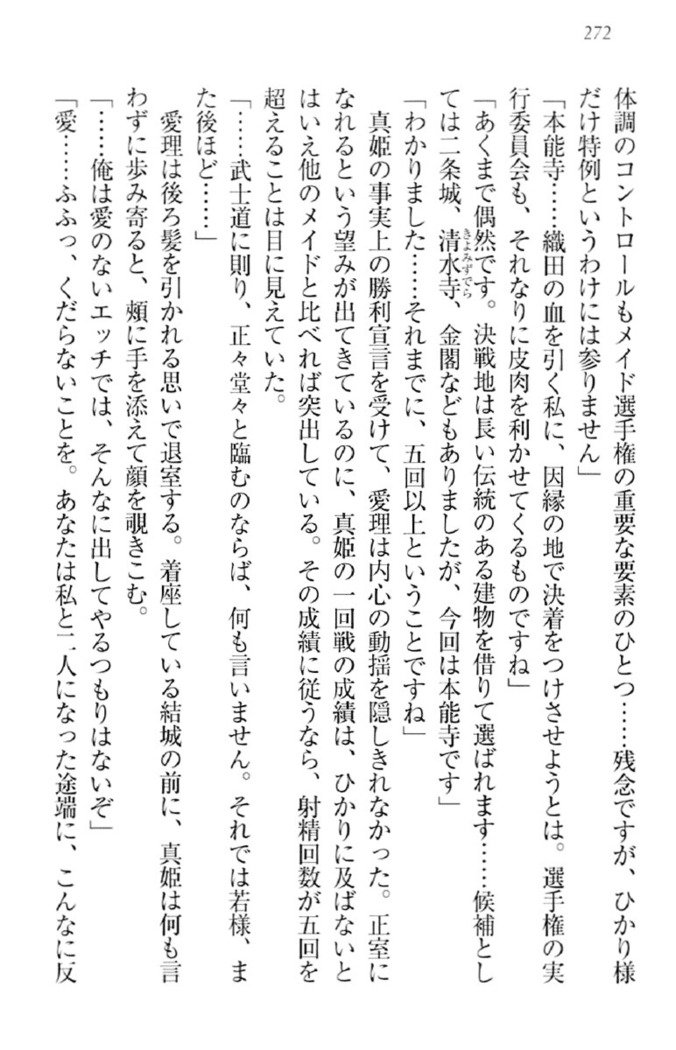 272
体調のコントロールもメイド選手権の重要な要素のひとつ……残念ですが、ひかり様
だけ特例というわけには参りません」
「本能寺……織田の血を引く私に、因縁の地で決着をつけさせようとは。選手権の実
行委員会も、それなりに皮肉を利かせてくるものですね」
「あくまで偶然です。決戦地は長い伝統のある建物を借りて選ばれます……候補とし
ては二条城、清水寺、金閣などもありましたが、今回は本能寺です」
きよみずでら
「わかりました……それまでに、五回以上ということですね」
真姫の事実上の勝利宣言を受けて、愛理は内心の動揺を隠しきれなかった。正室に
なれるという望みが出てきているのに、真姫の一回戦の成績は、ひかりに及ばないと
はいえ他のメイドと比べれば突出している。その成績に従うなら、射精回数が五回を
超えることは目に見えていた。
「……武士道に則り、正々堂々と臨むのならば、何も言いません。それでは若様、ま
た後ほど……」
愛理は後ろ髪を引かれる思いで退室する。着座している結城の前に、真姫は何も言
わずに歩み寄ると、頬に手を添えて顔を覗きこむ。
「……俺は愛のないエッチでは、そんなに出してやるつもりはないぞ」
「愛……ふふっ、くだらないことを。あなたは私と二人になった途端に、こんなに反